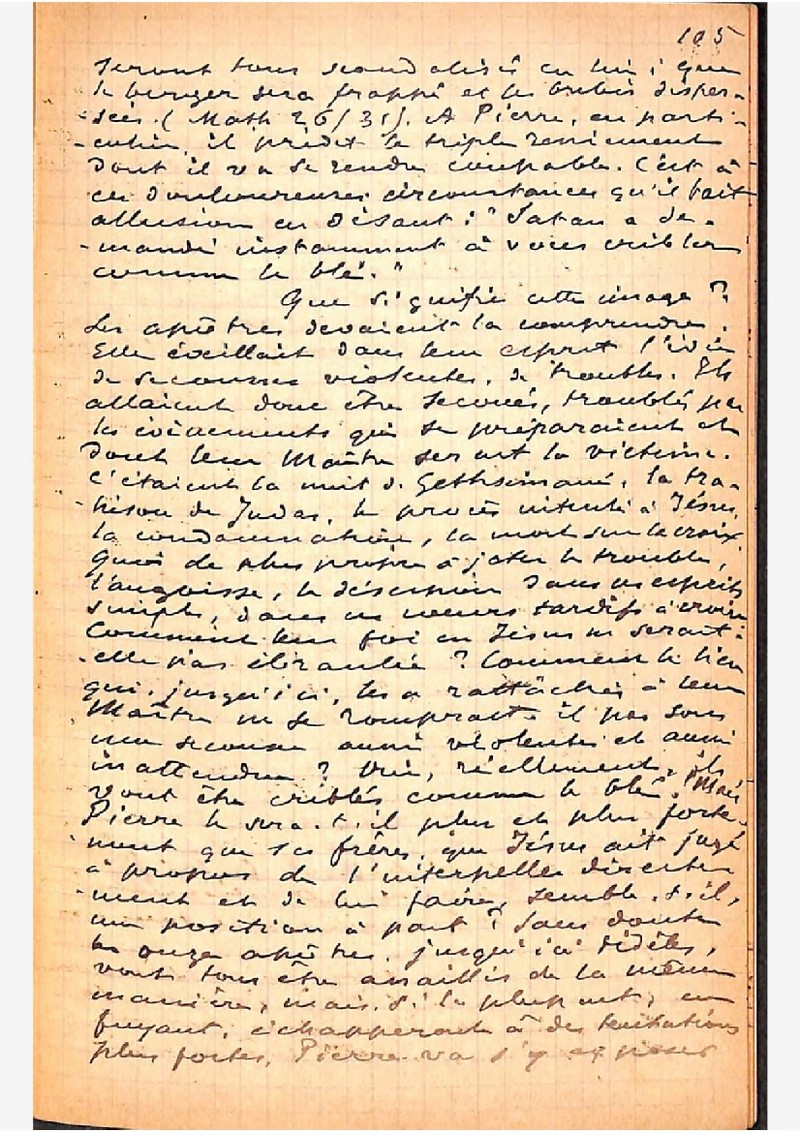 105
seront tous scandalisés en lui ; que
le berger sera frappé et les brebis disper-
-sées. (Math 26/31). A Pierre, en parti-
-culier, il prédit le triple reniement
dont il va se rendre coupable. C'est à
ces douloureuses circonstances qu'il fait
allusion en disant : "Satan a de-
-mandé instamment à vous cribler
comme le blé."
Que signifie cette image ?
Les apôtres devaient la comprendre.
Elle éveillait dans leur esprit l'idée
de secousses violentes, de troubles. Ils
allaient donc être secoués, troublés par
les évènements qui se préparaient et
dont leur Maître serait la victime.
C'étaient la nuit de Gethsémané, la tra-
-hison de Judas, le procès intenté à Jésus,
la condamnation, la mort sur la croix
Quoi de plus propre à jeter le trouble,
l'angoisse, le désespoir dans ces esprits
simples, dans ces coeurs tardifs à croire
Comment leur foi en Jésus ne serait-
-elle pas ébranlée ? Comment le lien
qui, jusqu'ici, les a rattachés à leur
Maître ne se romprait-il pas sous
une secousse aussi violente et aussi
inattendue ? Oui, réellement, ils
vont être criblés comme le blé. Mais
Pierre le sera-t-il plus et plus forte-
-ment que ses frères, que Jésus ait jugé
à propos de l'interpeller directe-
-ment et de lui faire, semble-t-il,
une position à part ? Sans doute
les onze apôtres, jusqu'ici fidèles,
vont tous être assaillis de la même
manière, mais, si la plupart, en
fuyant, échapperont à des tentations
plus fortes, Pierre va s'y exposer